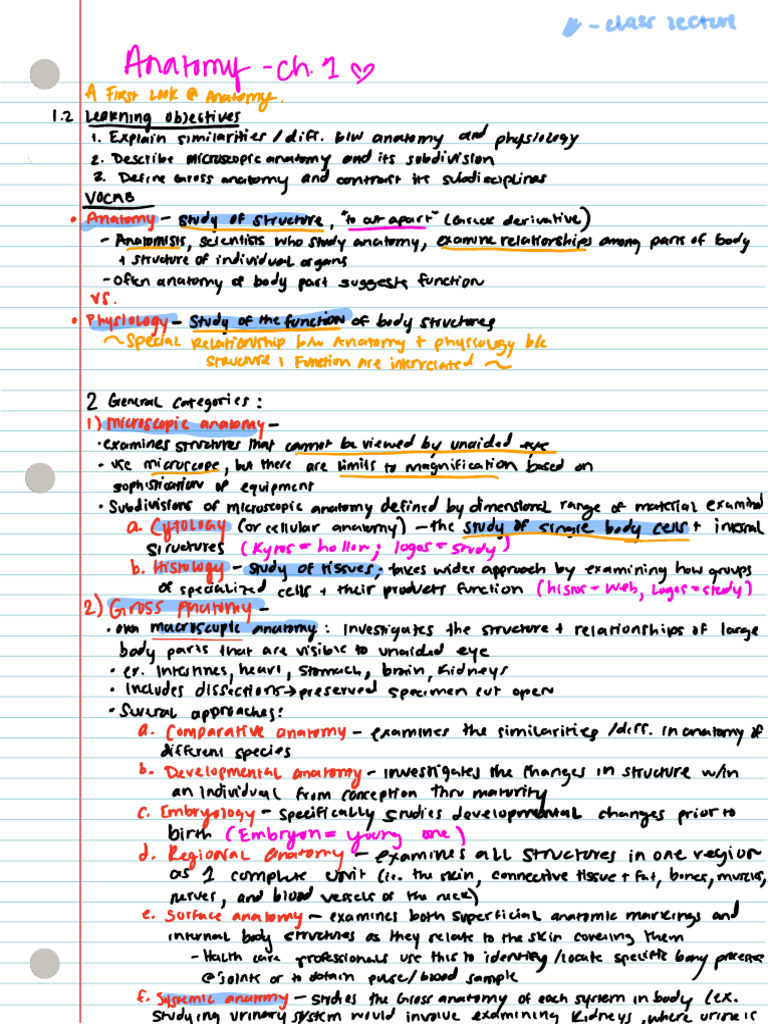 - class lecture
Anatomy - Ch. 1 ♡
A First Look @ Anatomy.
1.2 Learning Objectives
1. Explain similarities / diff. b/w anatomy and physiology
2. Describe microscopic anatomy and its subdivision
3. Define Gross anatomy and contrast its subdisciplines
VOCAB
• Anatomy - study of structure, "to cut apart" (Greek derivative)
- Anatomists, scientists who study anatomy, examine relationships among parts of body
+ structure of individual organs
- Often anatomy of body part suggests function
vs.
• Physiology - Study of the function of body structures
~ Special Relationship b/w Anatomy + physiology b/c
Structure & Function are interrelated ~
2 General Categories:
1) Microscopic anatomy -
• examines structures that cannot be viewed by unaided eye
• use microscope, but there are limits to magnification based on
sophistication of equipment
• Subdivisions of microscopic anatomy defined by dimensional range of material examined
a. Cytology (or cellular anatomy) - the study of single body cells + internal
structures (Kytos = hollow; logos = study)
b. Histology - study of tissues; takes wider approach by examining how groups
of specialized cells + their products function (histos = web, Logos = study)
2) Gross Anatomy -
• macroscopic anatomy: investigates the structure + relationships of large
body parts that are visible to unaided eye
• ex. Intestines, heart, stomach, brain, kidneys
• Includes dissections → preserved specimen cut open
• Several approaches:
a. Comparative anatomy - examines the similarities / diff. in anatomy of
different species
b. Developmental anatomy - investigates the changes in structure w/in
an individual from conception thru maturity
c. Embryology - specifically studies developmental changes prior to
birth (Embryon = young one)
d. Regional anatomy - examines all structures in one region
as 1 complete unit (i.e. the skin, connective tissue + fat, bones, muscles,
nerves, and blood vessels of the neck)
e. Surface anatomy - examines both superficial anatomic markings and
internal body structures as they relate to the skin covering them
- Health care professionals use this to identify / locate specific bony processes
@ joints or to obtain pulse / blood sample
f. Systemic anatomy - studies the Gross anatomy of each system in body (ex.
Studying urinary system would involve examining kidneys, where urine is